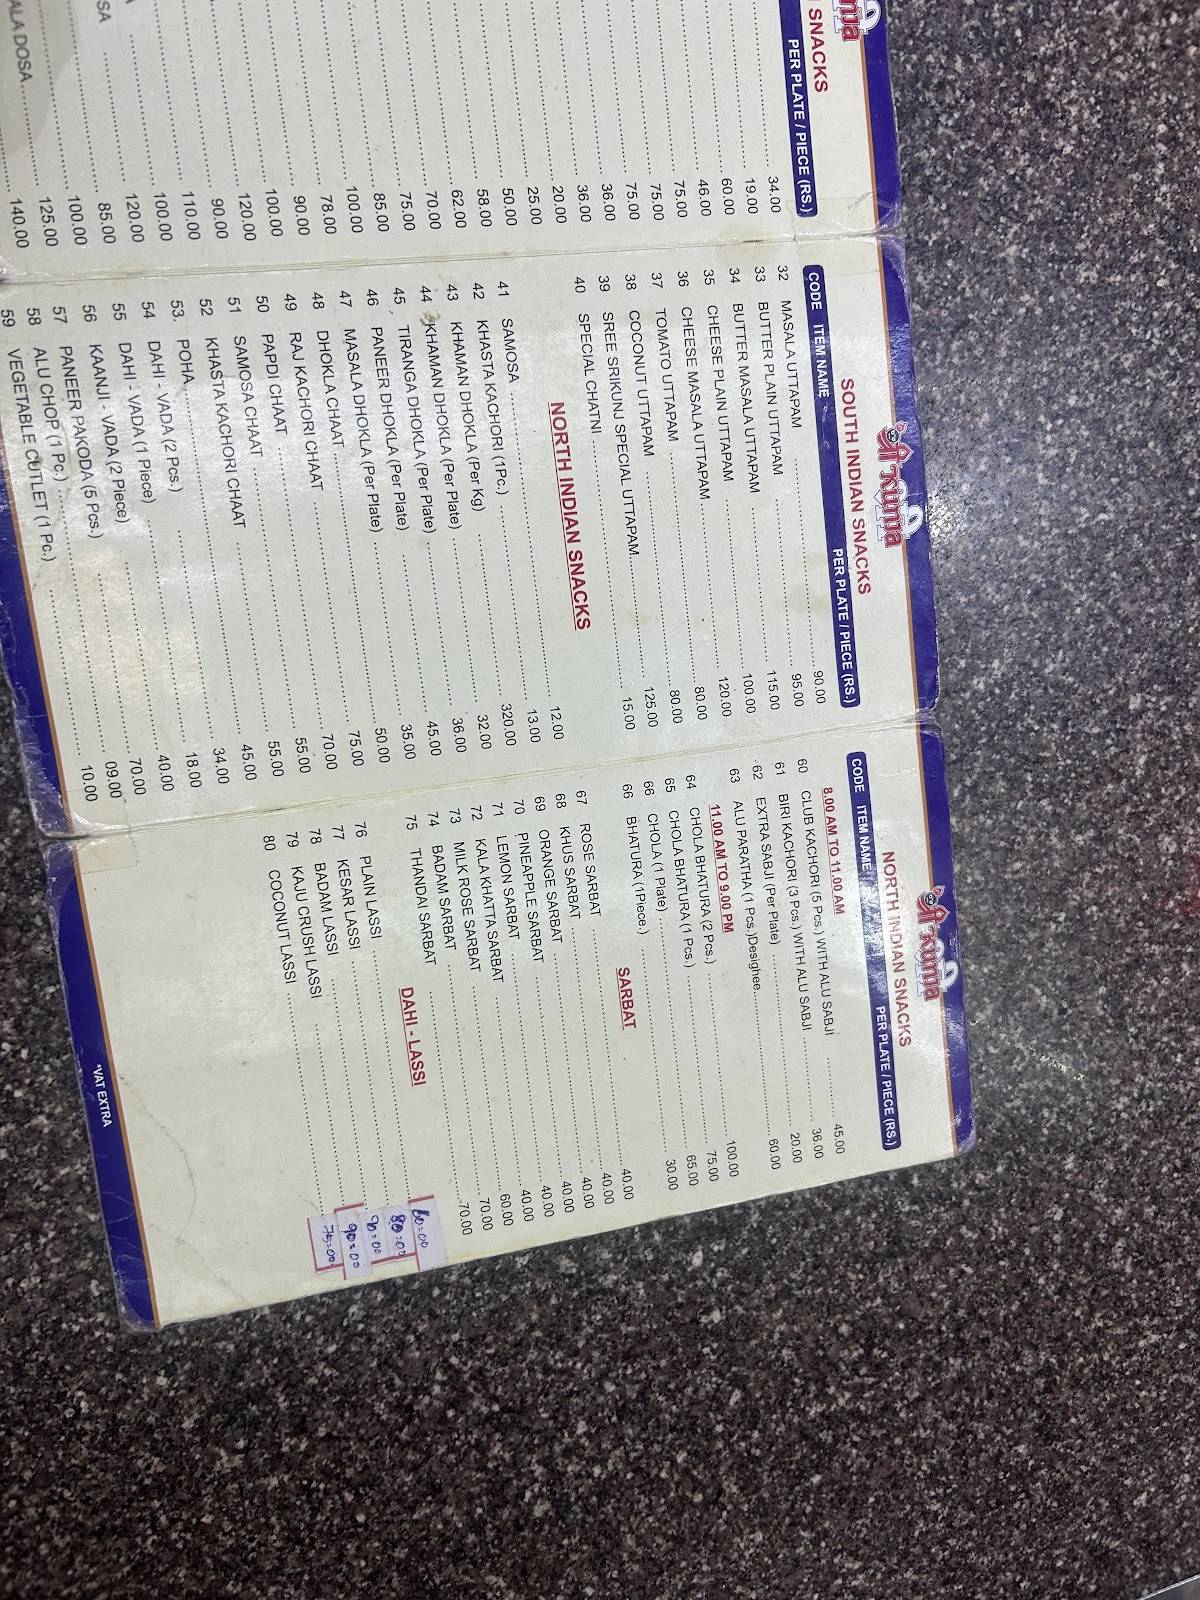 SNACKS
PER PLATE / PIECE (RS.)
34.00
19.00
60.00
46.00
75.00
75.00
75.00
36.00
36.00
20.00
25.00
50.00
58.00
62.00
70.00
75.00
85.00
100.00
78.00
90.00
100.00
120.00
90.00
110.00
100.00
120.00
85.00
100.00
125.00
ALA DOSA 140.00
श्री कुंज
SOUTH INDIAN SNACKS
CODE ITEM NAME PER PLATE / PIECE (RS.)
32 MASALA UTTAPAM 90.00
33 BUTTER PLAIN UTTAPAM 95.00
34 BUTTER MASALA UTTAPAM 115.00
35 CHEESE PLAIN UTTAPAM 100.00
36 CHEESE MASALA UTTAPAM 120.00
37 TOMATO UTTAPAM 80.00
38 COCONUT UTTAPAM 80.00
39 SREE SRIKUNJ SPECIAL UTTAPAM 125.00
40 SPECIAL CHATNI 15.00
NORTH INDIAN SNACKS
41 SAMOSA 12.00
42 KHASTA KACHORI (1Pc.) 13.00
43 KHAMAN DHOKLA (Per Kg) 320.00
44 KHAMAN DHOKLA (Per Plate) 32.00
45 TIRANGA DHOKLA (Per Plate) 36.00
46 PANEER DHOKLA (Per Plate) 45.00
47 MASALA DHOKLA (Per Plate) 35.00
48 DHOKLA CHAAT 50.00
49 RAJ KACHORI CHAAT 75.00
50 PAPDI CHAAT 70.00
51 SAMOSA CHAAT 55.00
52 KHASTA KACHORI CHAAT 55.00
53. POHA 45.00
54 DAHI - VADA (2 Pcs.) 34.00
55 DAHI - VADA (1 Piece) 18.00
56 KAANJI - VADA (2 Piece) 40.00
57 PANEER PAKODA (5 Pcs.) 70.00
58 ALU CHOP (1 Pc.) 09.00
59 VEGETABLE CUTLET (1 Pc.) 10.00
श्री कुंज
NORTH INDIAN SNACKS
CODE ITEM NAME PER PLATE / PIECE (RS.)
8.00 AM TO 11.00 AM
60 CLUB KACHORI (5 Pcs.) WITH ALU SABJI 45.00
61 BIRI KACHORI (3 Pcs.) WITH ALU SABJI 36.00
62 EXTRA SABJI (Per Plate) 20.00
63 ALU PARATHA (1 Pcs.)Desighee 60.00
11.00 AM TO 9.00 PM
64 CHOLA BHATURA (2 Pcs.) 100.00
65 CHOLA BHATURA (1 Pcs.) 75.00
66 CHOLA (1 Plate) 65.00
66 BHATURA (1Piece.) 30.00
SARBAT
67 ROSE SARBAT 40.00
68 KHUS SARBAT 40.00
69 ORANGE SARBAT 40.00
70 PINEAPPLE SARBAT 40.00
71 LEMON SARBAT 40.00
72 KALA KHATTA SARBAT 40.00
73 MILK ROSE SARBAT 60.00
74 BADAM SARBAT 70.00
75 THANDAI SARBAT 70.00
DAHI - LASSI
76 PLAIN LASSI 60=00
77 KESAR LASSI 80=00
78 BADAM LASSI 90=00
79 KAJU CRUSH LASSI 90=00
80 COCONUT LASSI 75=00
*VAT EXTRA